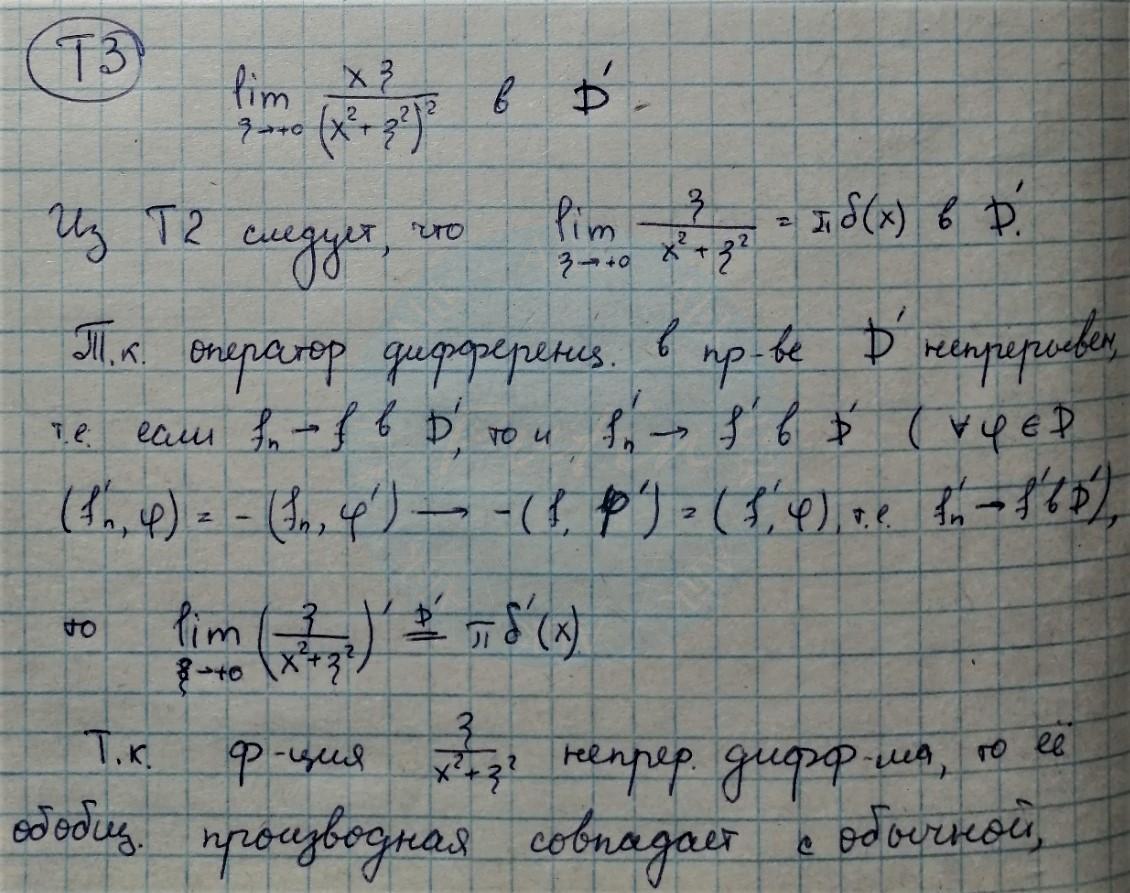 T3
lim_{ξ→+0} xξ/(x²+ξ²)² в D'.
Из T2 следует, что lim_{ξ→+0} ξ/(x²+ξ²) = πδ(x) в D'.
Т.к. оператор дифференц. в пр-ве D' непрерывен,
т.е. если fₙ → f в D', то и fₙ' → f' в D' ( ∀φ∈D
(fₙ', φ) = -(fₙ, φ') → -(f, φ') = (f', φ), т.е. fₙ' → f' в D'),
то lim_{ξ→+0} (ξ/(x²+ξ²))' =^{D'} πδ'(x)
Т.к. ф-ция ξ/(x²+ξ²) непрер. дифф-ма, то её
обобщ. производная совпадает с обычной,